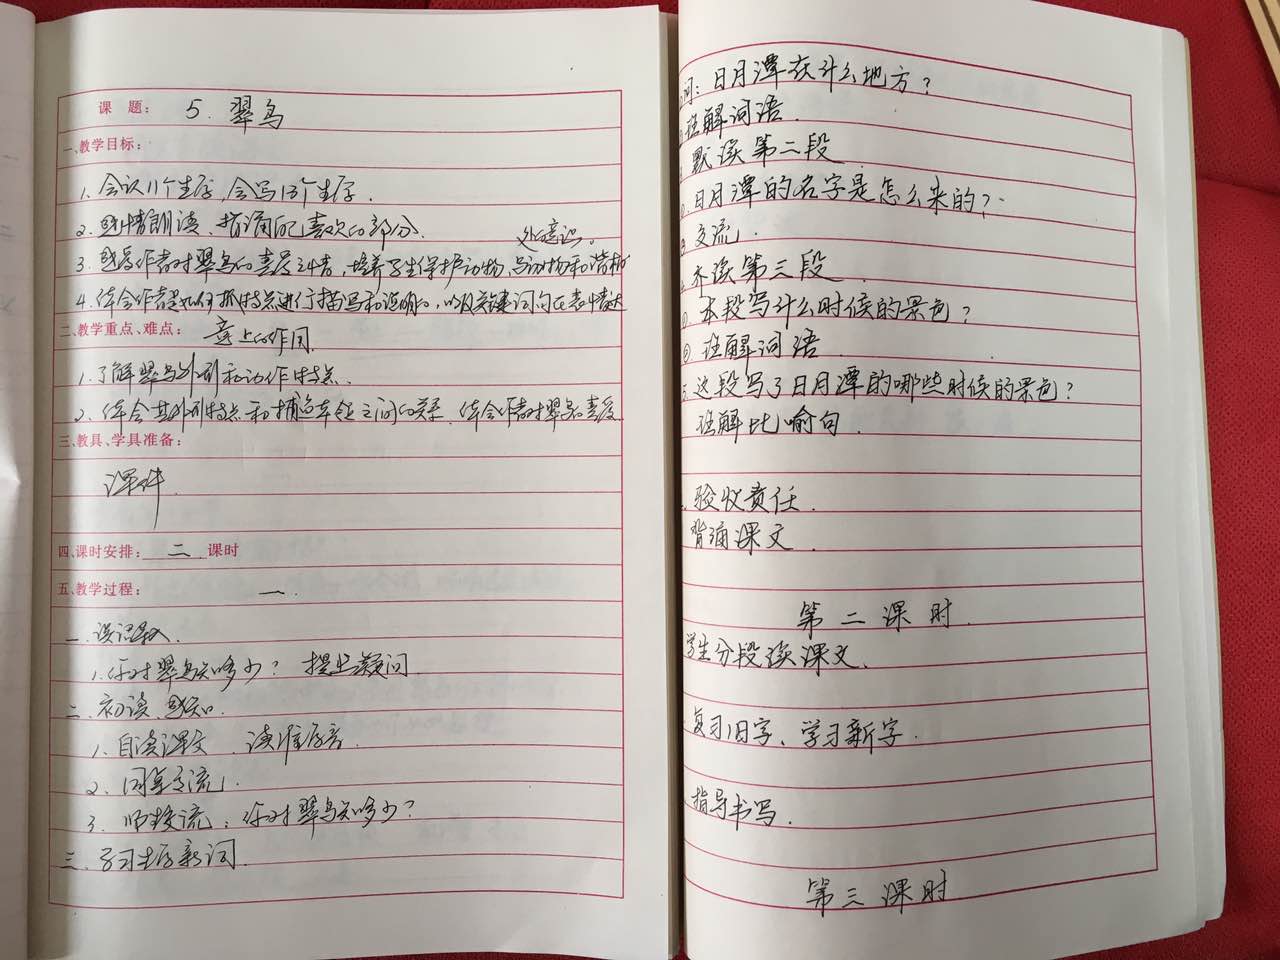 课 题： 5. 翠鸟
一、教学目标：
1. 会认11个生字，会写13个生字.
2. 感情朗读、背诵自己喜欢的部分.
处的意识。
3. 感受作者对翠鸟的喜爱之情，培养学生保护动物，与动物和谐相
4. 体会作者是如何抓特点进行描写和说明的，以及关键词句在表情达
二、教学重点、难点： 意上的作用.
1. 了解翠鸟外形和动作特点.
2. 体会其外形特点和捕鱼本领之间的关系. 体会作者对翠鸟的喜爱
三、教具、学具准备：
课件.
四、课时安排： 二 课时
五、教学过程： 一.
一. 谈话导入.
1. 你对翠鸟知多少？ 提出疑问.
二. 初读感知.
1. 自读课文. 读准字音.
2. 同桌交流.
3. 师生交流：你对翠鸟知多少？
三. 学习生字新词.
问：日月潭在什么地方？
理解词语.
默读第二段.
日月潭的名字是怎么来的？
交流.
齐读第三段.
本段写什么时候的景色？
理解词语
这段写了日月潭的哪些时候的景色？
理解比喻句.
验收责任.
背诵课文.
第二课时.
学生分段读课文.
复习旧字、学习新字.
指导书写.
第三课时